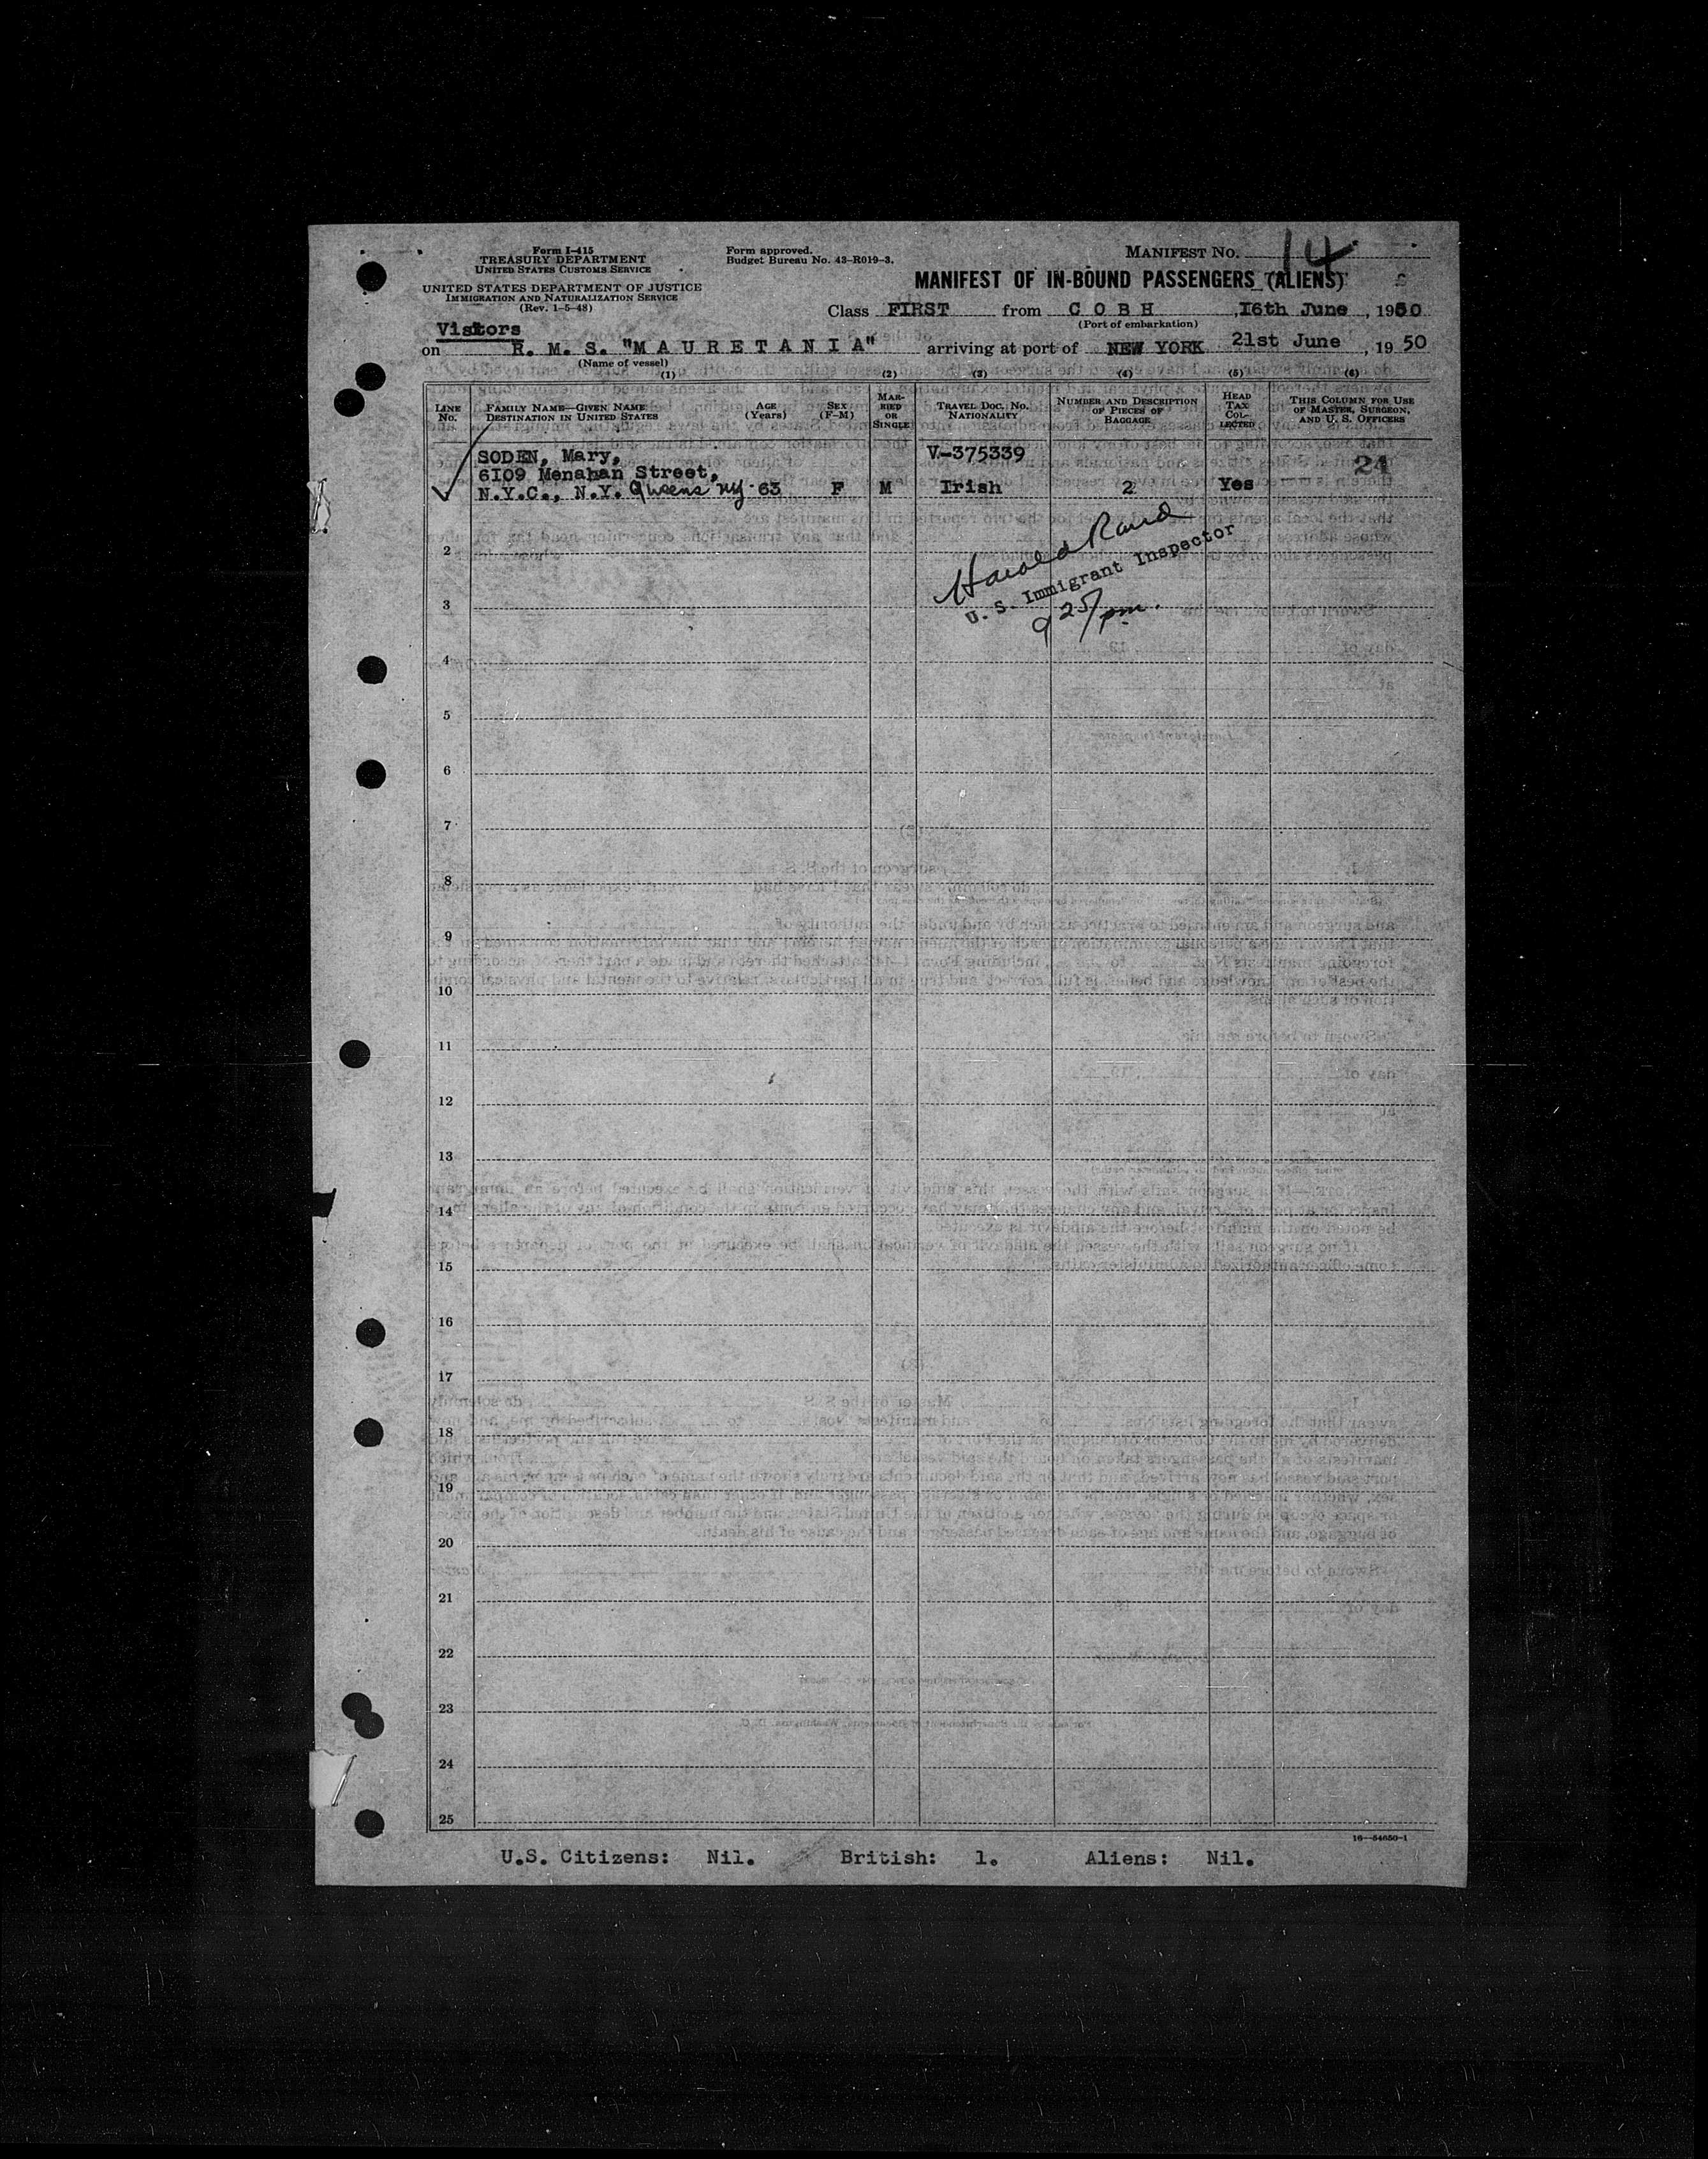 Form I-415
TREASURY DEPARTMENT
UNITED STATES CUSTOMS SERVICE
UNITED STATES DEPARTMENT OF JUSTICE
IMMIGRATION AND NATURALIZATION SERVICE
(Rev. 1-5-48)
Form approved.
Budget Bureau No. 43-R019-3.
MANIFEST NO. 14
MANIFEST OF IN-BOUND PASSENGERS (ALIENS)
Class FIRST from C O B H , 16th June , 1950
(Port of embarkation)
Visitors
on R. M. S. "M A U R E T A N I A" arriving at port of NEW YORK 21st June , 19 50
(Name of vessel)
(1) (2) (3) (4) (5) (6)
LINE NO. FAMILY NAME—GIVEN NAME DESTINATION IN UNITED STATES AGE (Years) SEX (F-M) MARRIED OR SINGLE TRAVEL DOC. NO. NATIONALITY NUMBER AND DESCRIPTION OF PIECES OF BAGGAGE HEAD TAX COLLECTED THIS COLUMN FOR USE OF MASTER, SURGEON, AND U. S. OFFICERS
SODEN, Mary, V-375339
6109 Menahan Street, 24
N.Y.C., N.Y. Queens NY 63 F M Irish 2 Yes
Harold Rand
U. S. Immigrant Inspector
9 25/pm.
2
3
4
5
6
7
8
9
10
11
12
13
14
15
16
17
18
19
20
21
22
23
24
25
16—54650-1
U.S. Citizens: Nil. British: 1. Aliens: Nil.